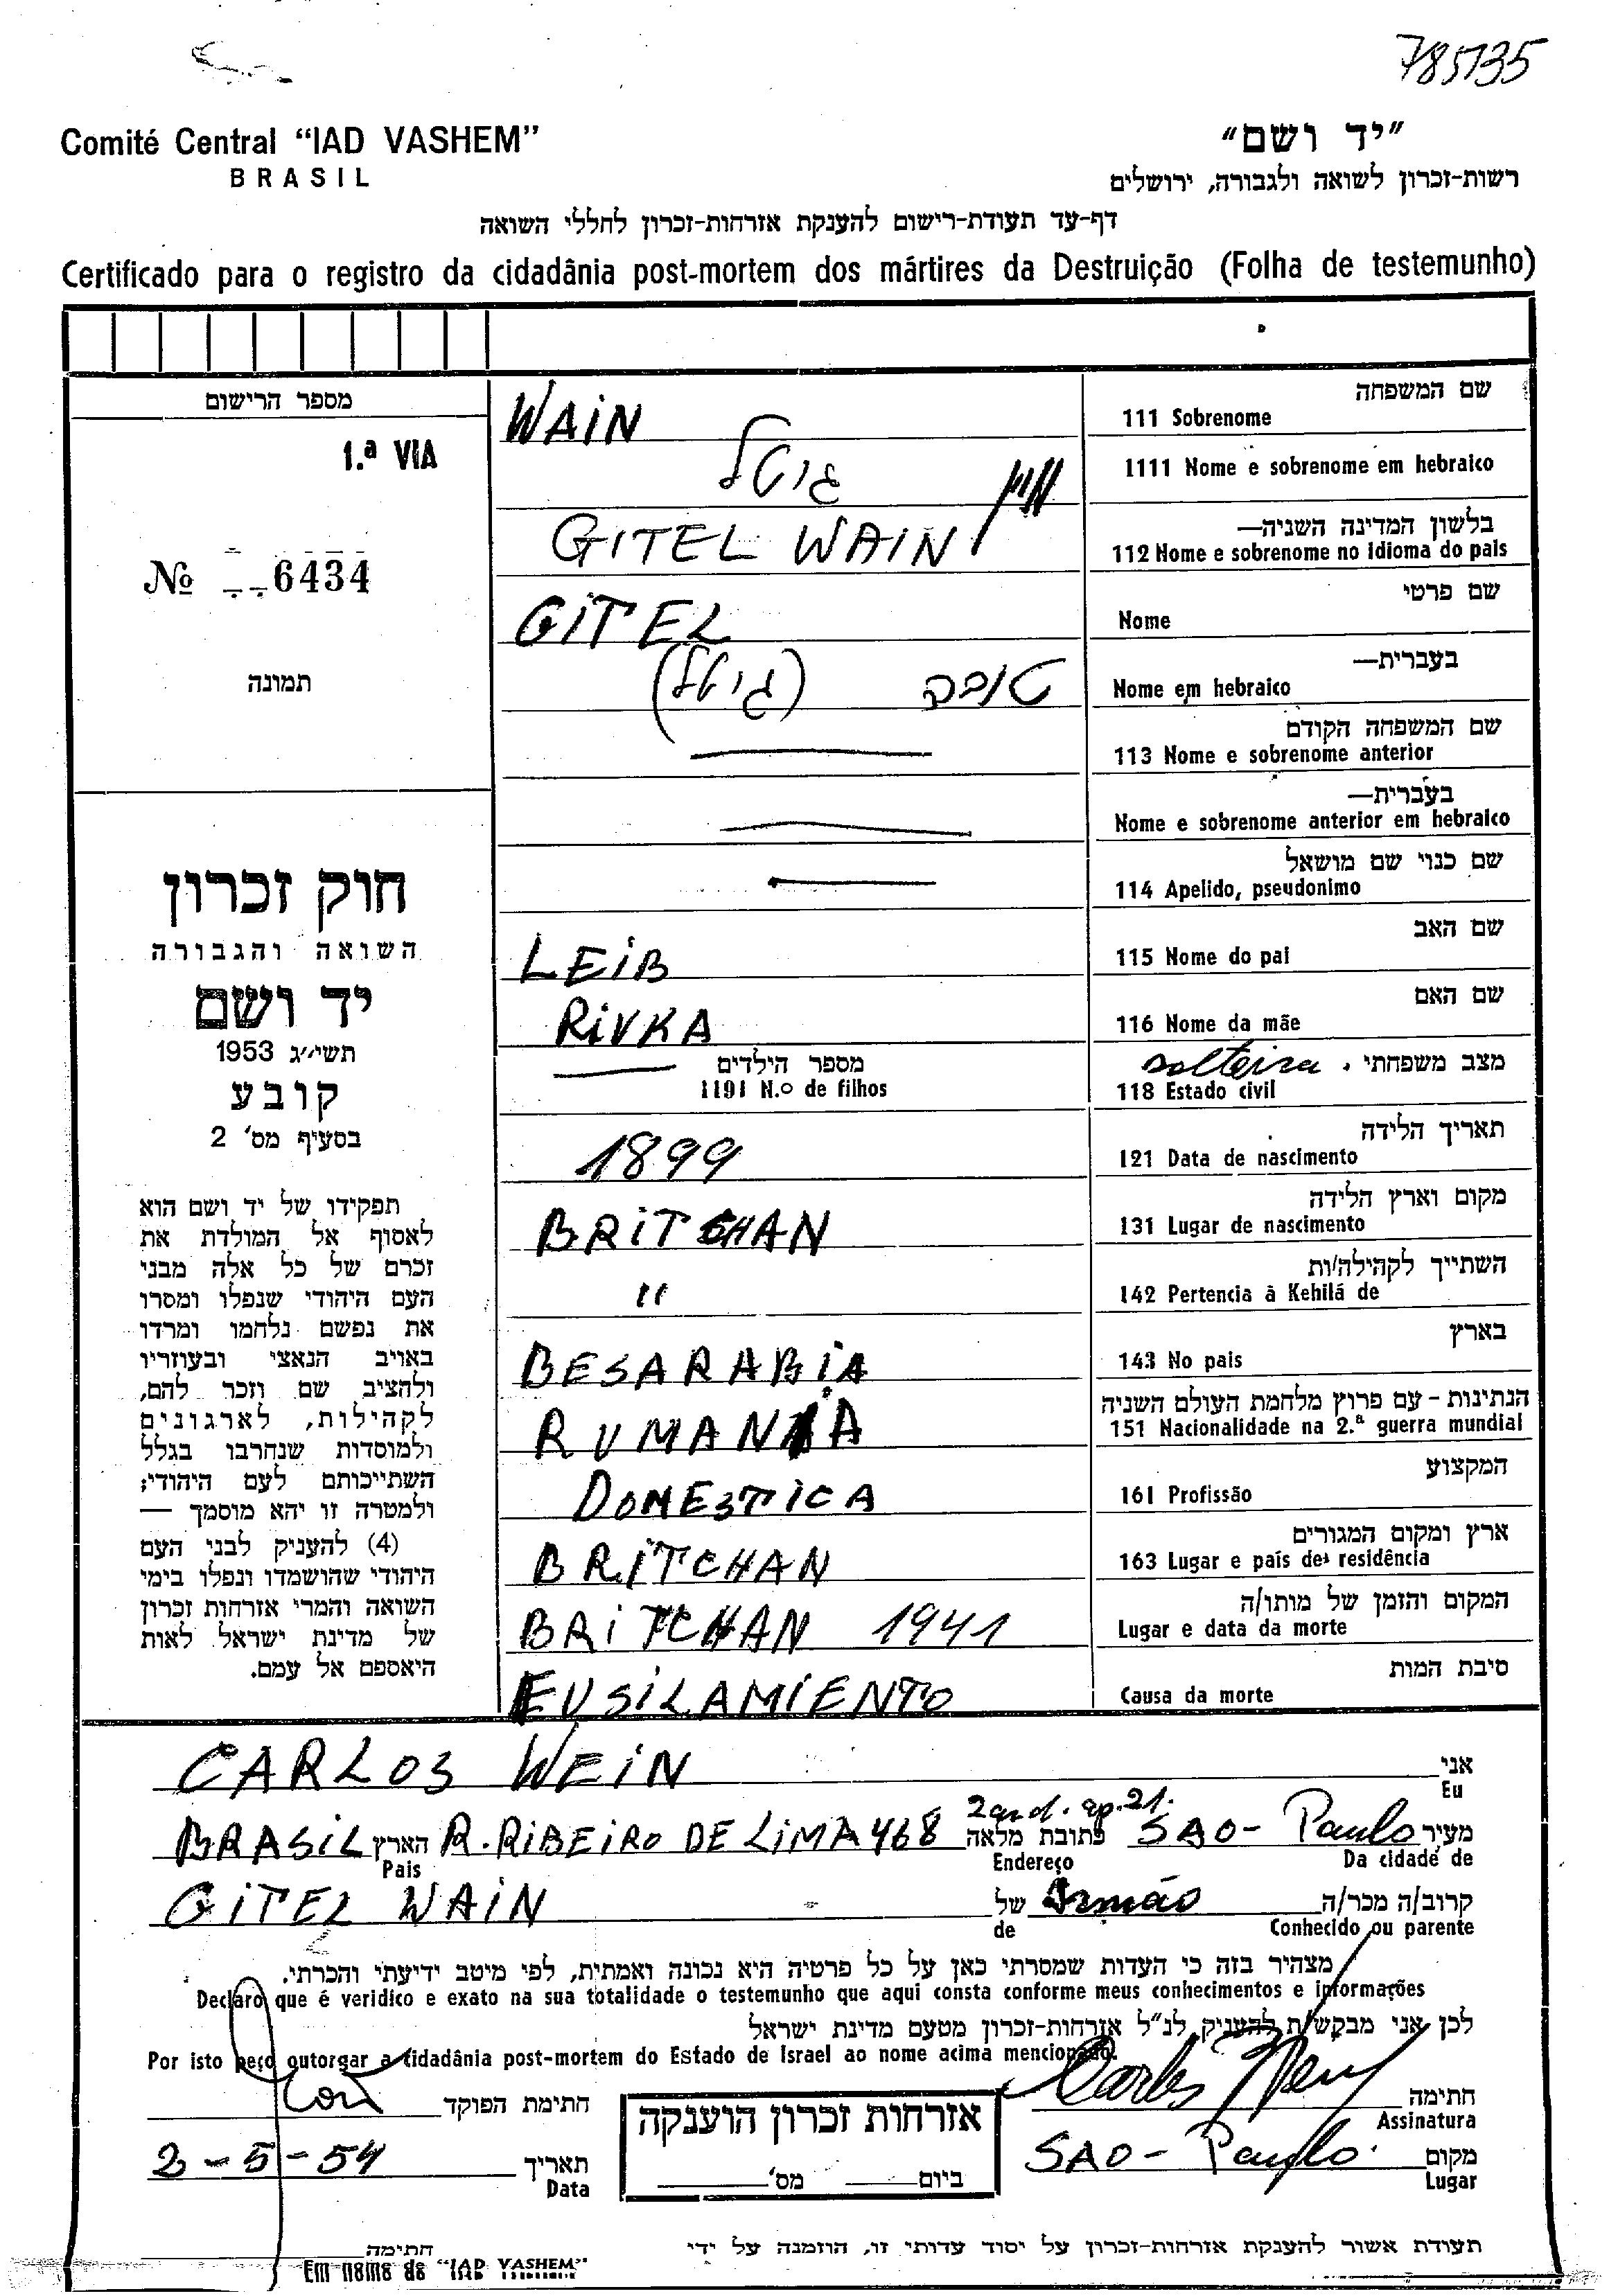 785135
Comité Central "IAD VASHEM"
BRASIL
"יד ושם"
רשות-זכרון לשואה ולגבורה, ירושלים
דף-עד תעודת-רישום להענקת אזרחות-זכרון לחללי השואה
Certificado para o registro da cidadânia post-mortem dos mártires da Destruição (Folha de testemunho)
מספר הרישום
1.ª VIA
№ 6434
תמונה
חוק זכרון
השואה והגבורה
יד ושם
תשי"ג 1953
קובע
בסעיף מס' 2
תפקידו של יד ושם הוא
לאסוף אל המולדת את
זכרם של כל אלה מבני
העם היהודי שנפלו ומסרו
את נפשם נלחמו ומרדו
באויב הנאצי ובעוזריו
ולהציב שם וזכר להם,
לקהילות, לארגונים
ולמוסדות שנחרבו בגלל
השתייכותם לעם היהודי;
ולמטרה זו יהא מוסמך —
(4) להעניק לבני העם
היהודי שהושמדו ונפלו בימי
השואה והמרי אזרחות זכרון
של מדינת ישראל לאות
היאספם אל עמם.
שם המשפחה
WAIN 111 Sobrenome
גיטל וויין 1111 Nome e sobrenome em hebraico
בלשון המדינה השניה—
GITEL WAIN 112 Nome e sobrenome no idioma do pais
שם פרטי
GITEL Nome
בעברית—
טובה (גיטל) Nome em hebraico
שם המשפחה הקודם
113 Nome e sobrenome anterior
בעברית—
Nome e sobrenome anterior em hebraico
שם כנוי שם מושאל
114 Apelido, pseudonimo
שם האב
LEIB 115 Nome do pai
שם האם
RIVKA 116 Nome da mãe
מספר הילדים
1191 N.º de filhos
מצב משפחתי. solteira
118 Estado civil
תאריך הלידה
1899 121 Data de nascimento
מקום וארץ הלידה
BRITCHAN 131 Lugar de nascimento
השתייך לקהילה/ות
" 142 Pertencia à Kehilá de
בארץ
BESARABIA 143 No pais
הנתינות - עם פרוץ מלחמת העולם השניה
RUMANIA 151 Nacionalidade na 2.ª guerra mundial
המקצוע
DOMESTICA 161 Profissão
ארץ ומקום המגורים
BRITCHAN 163 Lugar e país de residência
המקום והזמן של מותו/ה
BRITCHAN 1941 Lugar e data da morte
סיבת המות
FUSILAMIENTO Causa da morte
CARLOS WEIN אני
Eu
2 and. ap. 21.
BRASIL הארץ R. RIBEIRO DE LIMA 468 כתובת מלאה SAO-Paulo מעיר
Pais Endereço Da cidade de
GITEL WAIN של Irmão קרוב/ה מכר/ה
de Conhecido ou parente
מצהיר בזה כי העדות שמסרתי כאן על כל פרטיה היא נכונה ואמתית, לפי מיטב ידיעתי והכרתי.
Declaro que é veridico e exato na sua totalidade o testemunho que aqui consta conforme meus conhecimentos e informações
לכן אני מבקש/ת להעניק לנ"ל אזרחות-זכרון מטעם מדינת ישראל
Por isto peço outorgar a cidadânia post-mortem do Estado de Israel ao nome acima mencionado.
חתימת הפוקד
אזרחות זכרון הוענקה
ביום מס'
Carlos Wein חתימה
Assinatura
2-5-54 תאריך
Data
SAO-Paulo. מקום
Lugar
תעודת אשור להענקת אזרחות-זכרון על יסוד עדותי זו, הוזמנה על ידי
חתימה
Em nome de "IAD VASHEM"